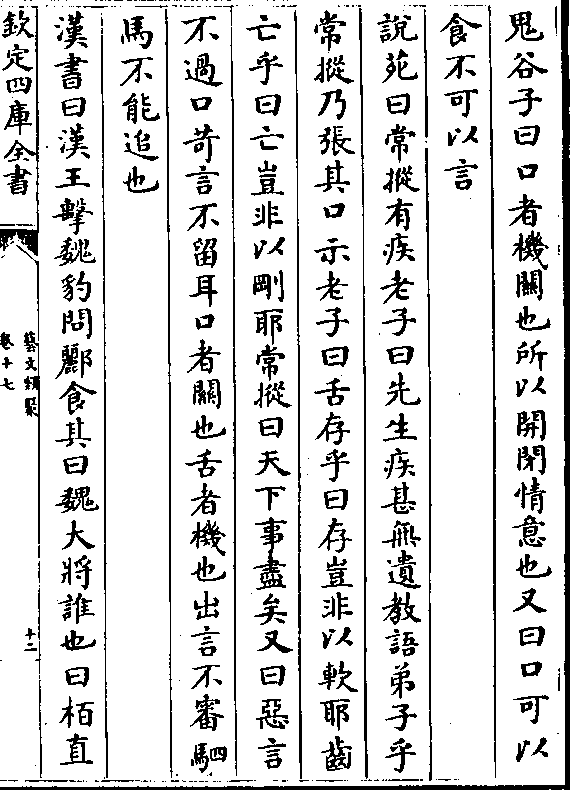 鬼谷子曰口者機關也所以開閉情意也又曰口可以
食不可以言
說苑曰常摐有疾老子曰先生疾甚無遺教語弟子乎
常摐乃張其口示老子曰舌存乎曰存豈非以軟耶齒
亡乎曰亡豈非以剛耶常摐曰天下事盡矣又曰惡言
不過口苛言不留耳口者關也舌者機也出言不審駟
馬不能追也
漢書曰漢王擊魏豹問酈食其曰魏大將誰也曰栢直
欽定四庫全書
藝文類聚
卷十七
十二